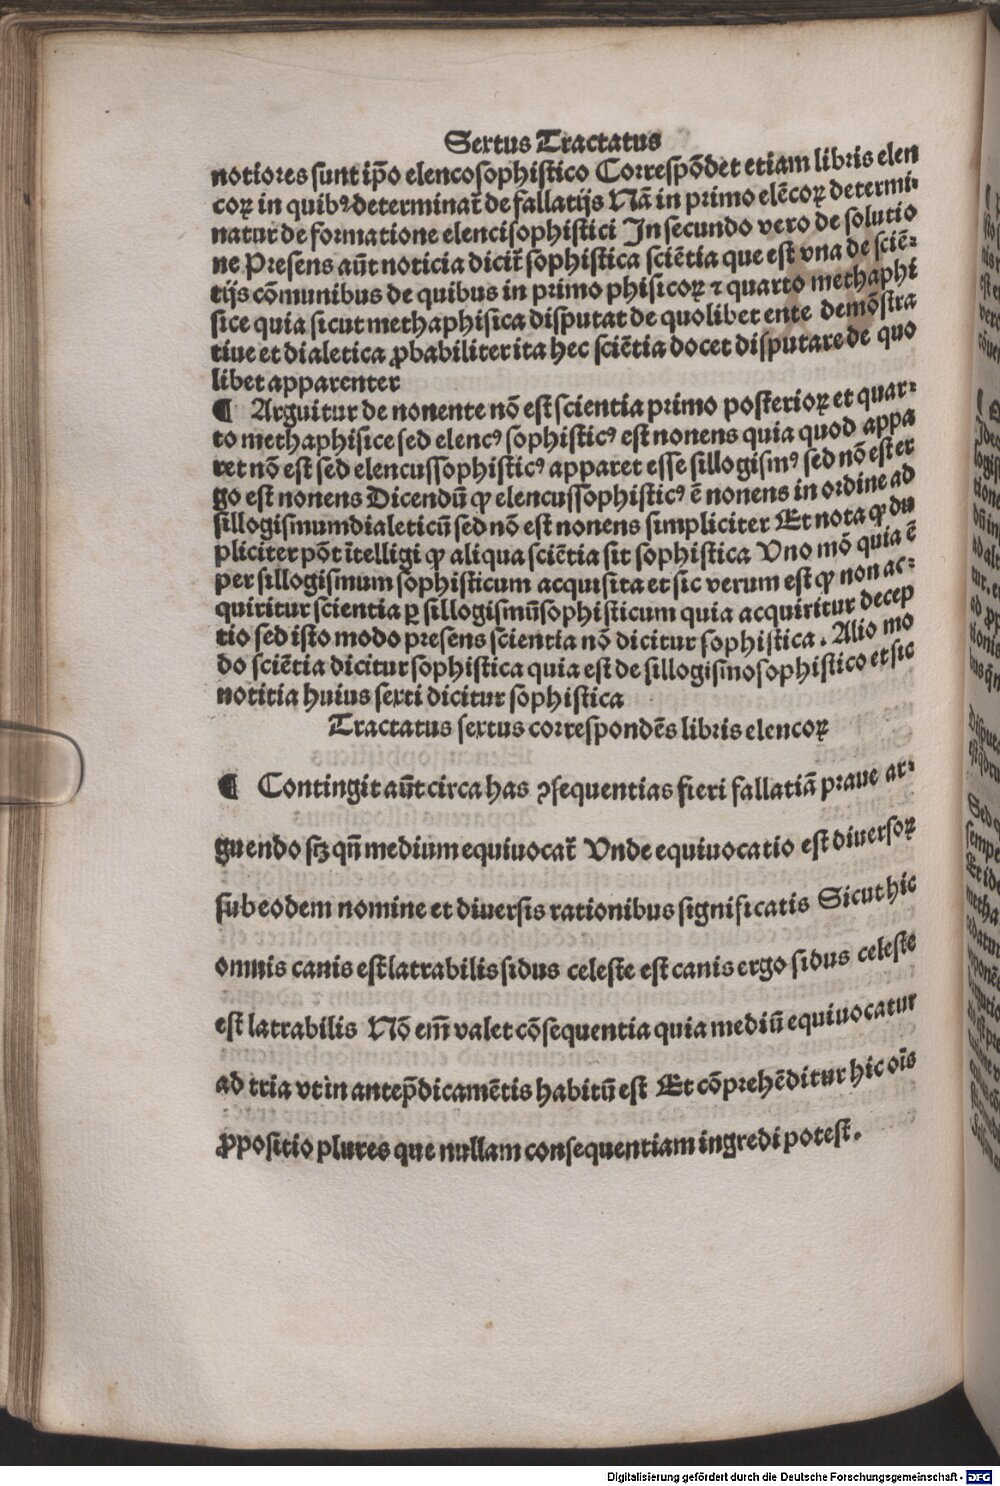 Sextus Tractatus
notiores sunt ip̄o elencosophistico Correspōdet etiam libris elen
coꝝ in quibꝰ determinat̄ de fallatijs Nā in primo elēcoꝝ determi⸗
natur de formatione elencisophistici In secundo vero de solutio
ne Presens aūt noticia dicit̄ sophistica sciētia que est vna de sciē⸗
tijs cōmunibus de quibus in primo phisicoꝝ ⁊ quarto methaphi
sice quia sicut methaphisica disputat de quolibet ente demōstra
tiue et dialetica ꝓbabiliter ita hec sciētia docet disputare de quo
libet apparenter
¶ Arguitur de nonente nō est scientia primo posterioꝝ et quar⸗
to methaphisice sed elencꝰ sophisticꝰ est nonens quia quod appa
ret nō est sed elencussophisticꝰ apparet esse sillogismꝰ sed nō est er
go est nonens Dicendū ꝙ elencussophisticꝰ ē nonens in ordine ad
sillogismumdialeticū sed nō est nonens simpliciter Et nota ꝙ du
pliciter pōt ītelligi ꝙ aliqua sciētia sit sophistica Vno mō quia ē
per sillogismum sophisticum acquisita et sic verum est ꝙ non ac⸗
quiritur scientia ꝑ sillogismūsophisticum quia acquiritur decep
tio sed isto modo presens scientia nō dicitur sophistica. Alio mo
do sciētia dicitur sophistica quia est de sillogismosophistico et sic
notitia huius sexti dicitur sophistica
Tractatus sextus correspondēs libris elencoꝝ
¶ Contingit aūt circa has ꝯsequentias fieri fallatiā praue ar⸗
guendo sꝫ qn̄ medium equiuocat̄ Vnde equiuocatio est diuersoꝝ
sub eodem nomine et diuersis rationibus significatis Sicut hic
omnis canis est latrabilis sidus celeste est canis ergo sidus celeste
est latrabilis Nō em̄ valet cōsequentia quia mediū equiuocatur
ad tria vt in antep̄dicamētis habitū est Et cōprehēditur hic oīs
ꝓpositio plures que nullam consequentiam ingredi potest.
Digitalisierung gefördert durch die Deutsche Forschungsgemeinschaft - DFG